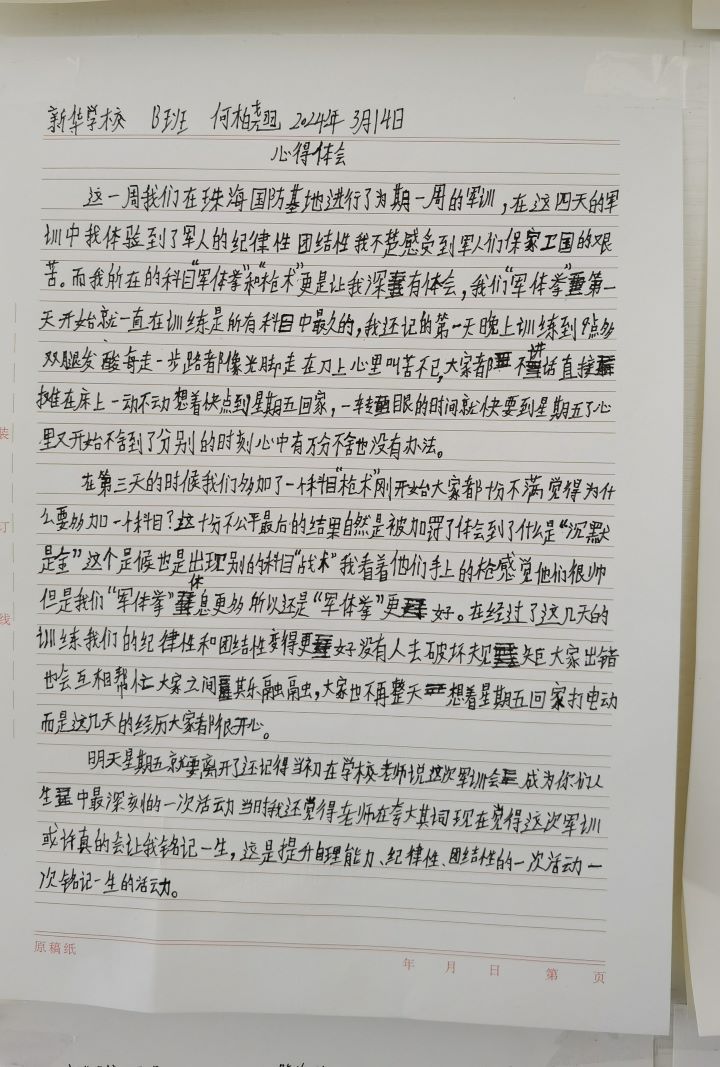 新华学校 B班 何柏尧 2024年3月14日
心得体会
这一周我们在珠海国防基地进行了为期一周的军训，在这四天的军
训中我体验到了军人的纪律性团结性我不禁感受到军人们保家卫国的艰
苦。而我所在的科目"军体拳"和"枪术"更是让我深有体会，我们"军体拳"第一
天开始就一直在训练是所有科目中最久的，我还记的第一天晚上训练到9点多
双腿发酸每走一步路都像光脚走在刀上心里叫苦不已，大家都不讲话直接
摊在床上一动不动想着快点到星期五回家，一转眼的时间就快要到星期五了心
里又开始不舍到了分别的时刻心中有万分不舍也没有办法。
在第三天的时候我们多加了一个科目"枪术"刚开始大家都十分不满觉得为什
么要多加一个科目？这十分不公平最后的结果自然是被加罚了体会到了什么是"沉默
是金"这个是候也是出现别的科目"战术"我看着他们手上的枪感觉他们很帅
但是我们"军体拳"休息更多所以还是"军体拳"更好。在经过了这几天的
训练我们的纪律性和团结性变得更好没有人去破坏规矩大家出错
也会互相帮忙大家之间其乐融融，大家也不再整天想着星期五回家打电动
而是这几天的经历大家都很开心。
明天星期五就要离开了还记得当初在学校老师说这次军训会成为你们人
生中最深刻的一次活动当时我还觉得老师在夸大其词现在觉得这次军训
或许真的会让我铭记一生，这是提升自理能力、纪律性、团结性的一次活动一
次铭记一生的活动。
原稿纸
年 月 日 第 页
装
订
线